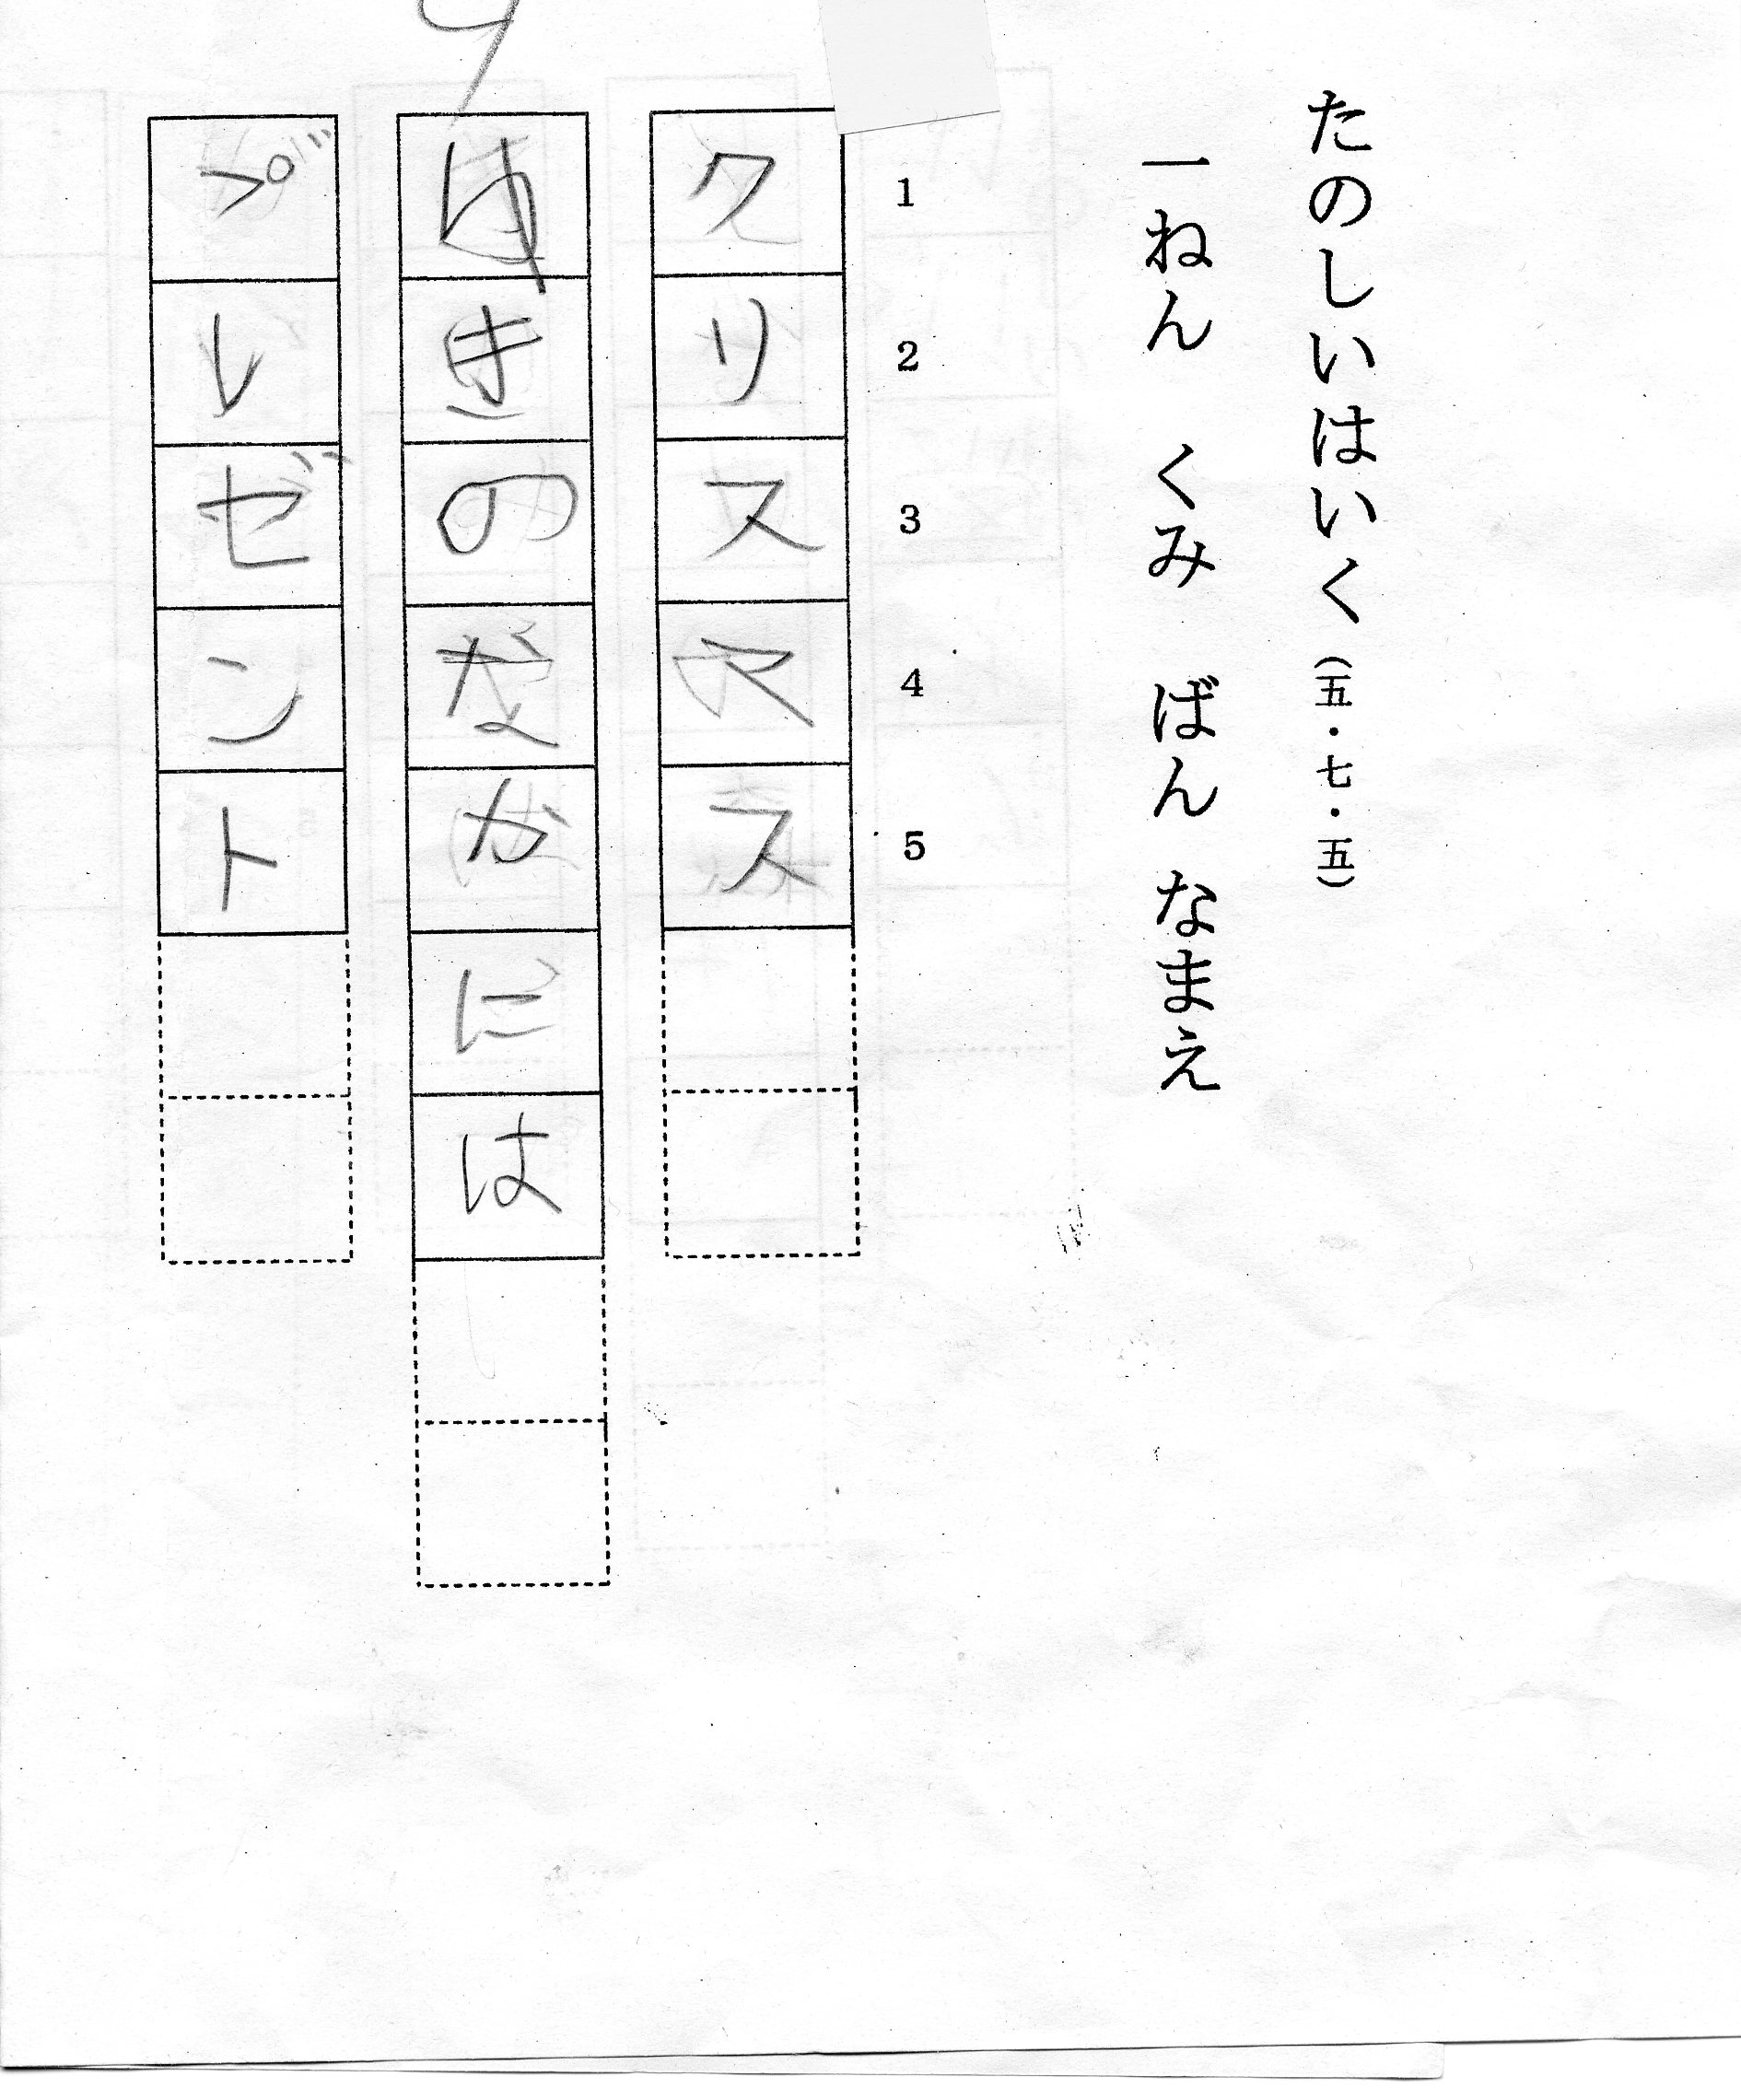 たのしいはいく(五・七・五)
一ねん くみ ばん なまえ
1 2 3 4 5
クリスマス
ゆきのなかには
プレゼント